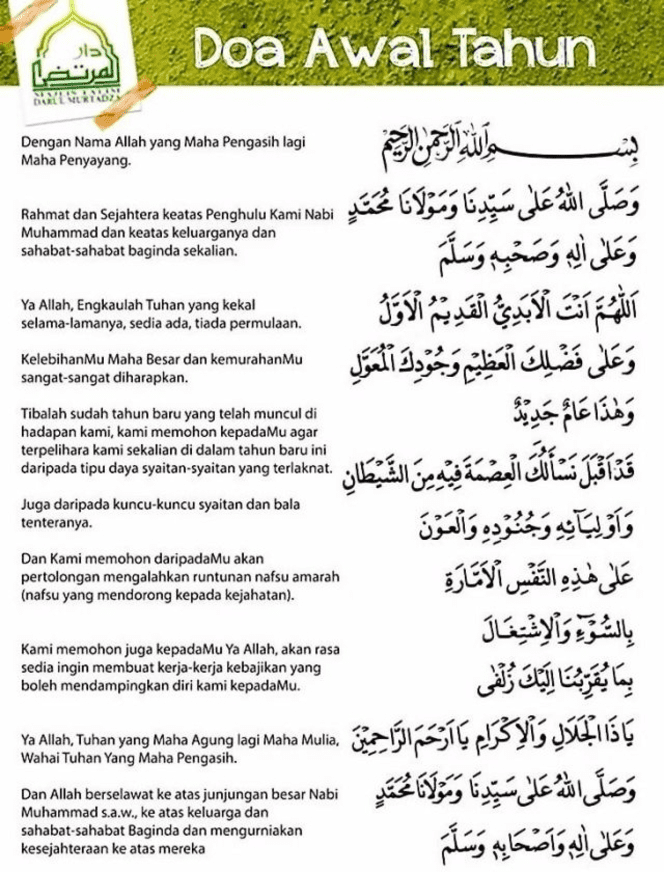 دار
المرتضى
MAJLIS TA'LIM
DARUL MURTADZA
Doa Awal Tahun
Dengan Nama Allah yang Maha Pengasih lagi
Maha Penyayang.
بِسْمِ اللهِ الرَّحْمٰنِ الرَّحِيْمِ
Rahmat dan Sejahtera keatas Penghulu Kami Nabi
Muhammad dan keatas keluarganya dan
sahabat-sahabat baginda sekalian.
وَصَلَّى اللهُ عَلٰى سَيِّدِنَا وَمَوْلَانَا مُحَمَّدٍ
وَعَلٰى اٰلِهٖ وَصَحْبِهٖ وَسَلَّمَ
Ya Allah, Engkaulah Tuhan yang kekal
selama-lamanya, sedia ada, tiada permulaan.
اَللّٰهُمَّ اَنْتَ الْاَبَدِيُّ الْقَدِيْمُ الْاَوَّلُ
KelebihanMu Maha Besar dan kemurahanMu
sangat-sangat diharapkan.
وَعَلٰى فَضْلِكَ الْعَظِيْمِ وَجُوْدِكَ الْمُعَوَّلِ
Tibalah sudah tahun baru yang telah muncul di
hadapan kami, kami memohon kepadaMu agar
terpelihara kami sekalian di dalam tahun baru ini
daripada tipu daya syaitan-syaitan yang terlaknat.
وَهٰذَا عَامٌ جَدِيْدٌ
قَدْ اَقْبَلَ نَسْأَلُكَ الْعِصْمَةَ فِيْهِ مِنَ الشَّيْطَانِ
Juga daripada kuncu-kuncu syaitan dan bala
tenteranya.
وَاَوْلِيَآئِهٖ وَجُنُوْدِهٖ وَالْعَوْنَ
Dan Kami memohon daripadaMu akan
pertolongan mengalahkan runtunan nafsu amarah
(nafsu yang mendorong kepada kejahatan).
عَلٰى هٰذِهِ النَّفْسِ الْاَمَّارَةِ
بِالسُّوْٓءِ وَالْاِشْتِغَالَ
Kami memohon juga kepadaMu Ya Allah, akan rasa
sedia ingin membuat kerja-kerja kebajikan yang
boleh mendampingkan diri kami kepadaMu.
بِمَا يُقَرِّبُنَا اِلَيْكَ زُلْفٰى
Ya Allah, Tuhan yang Maha Agung lagi Maha Mulia,
Wahai Tuhan Yang Maha Pengasih.
يَاذَا الْجَلَالِ وَالْاِكْرَامِ يَا اَرْحَمَ الرَّاحِمِيْنَ
Dan Allah berselawat ke atas junjungan besar Nabi
Muhammad s.a.w., ke atas keluarga dan
sahabat-sahabat Baginda dan mengurniakan
kesejahteraan ke atas mereka
وَصَلَّى اللهُ عَلٰى سَيِّدِنَا وَمَوْلَانَا مُحَمَّدٍ
وَعَلٰى اٰلِهٖ وَاَصْحَابِهٖ وَسَلَّمَ